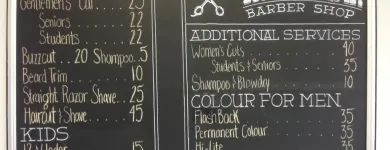 Gentlemen's Cut.... 25
Seniors 22
Students .... 22
Buzzcut .. 20 Shampoo..5
Beard Trim .... 10
Straight Razor Shave .. 25
Haircut & Shave .... 45
KIDS
12 & Under 15
BARBER SHOP
ADDITIONAL SERVICES
Women's Cuts 40
Students & Seniors 35
Shampoo & Blowdry 10
COLOUR FOR MEN
Flash Back 35
Permanent Colour 35
Hi-lite 35